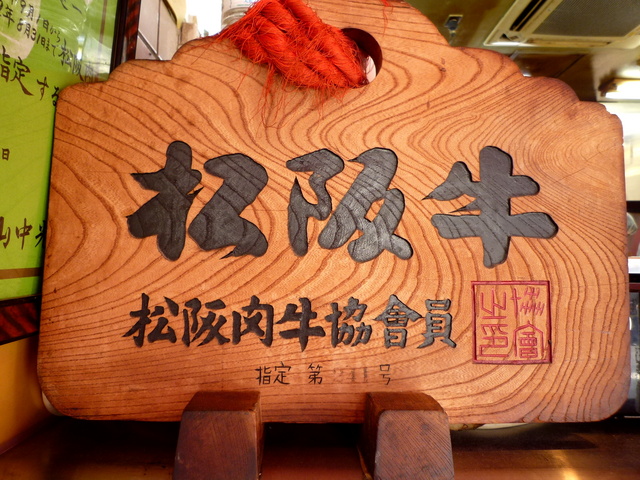 指定する
山中
松阪牛
松阪肉牛協會員
指定 第211号
協會之印